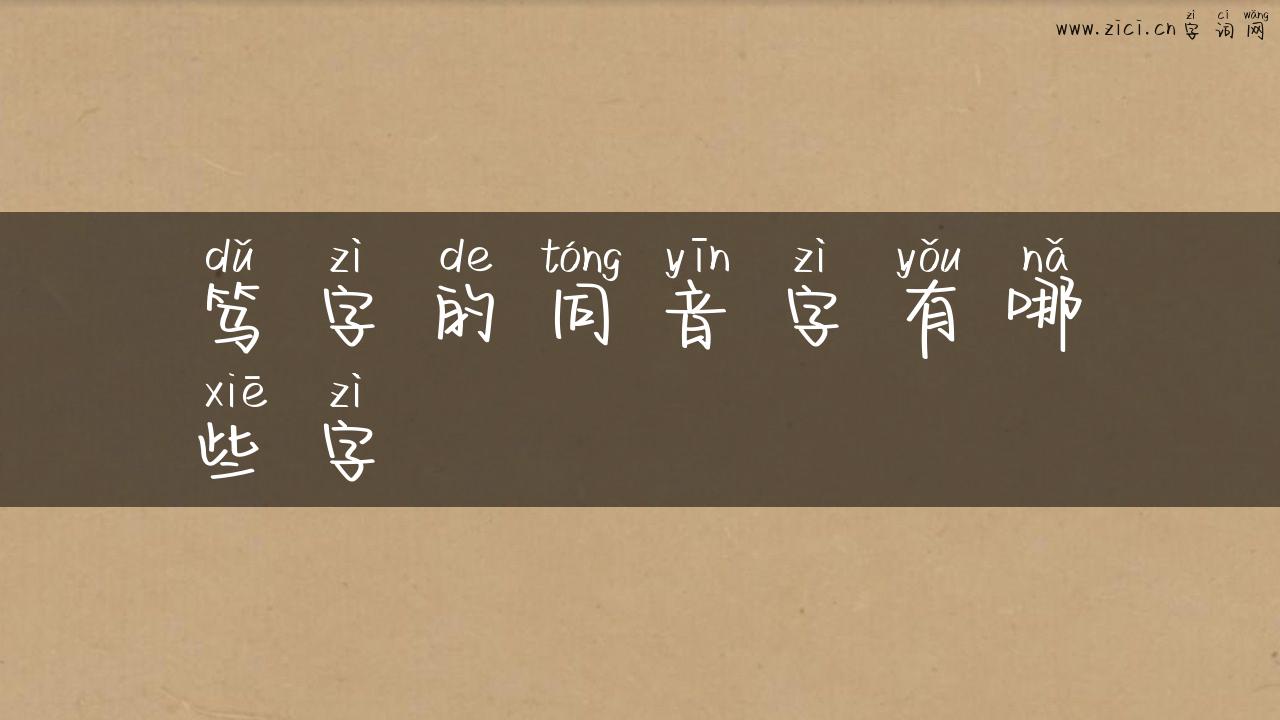 zì cí wǎng
www.zici.cn 字 词 网
dǔ zì de tóng yīn zì yǒu nǎ
笃 字 的 同 音 字 有 哪
xiē zì
些 字